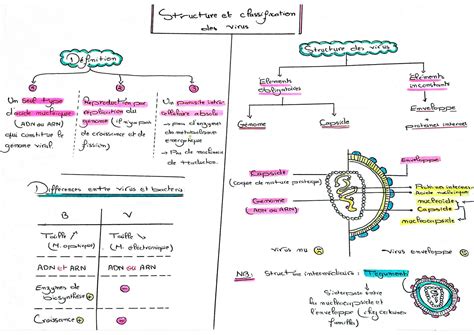 Structure et classification
des virus
Définition
Un seul type
d'acide nucléique
(ADN ou ARN)
qui constitue le
génome viral.
Reproduction par
réplication du
génome (il n'y a pas
de croissance et de
fission)
Un parasite intra-
cellulaire absolu
→ pas d'enzymes
de métabolisme
énergétique
→ Pas de machinerie
de traduction.
Différences entre virus et bactéries
B
V
Taille ↗
(M. optique)
Taille ↘
(M. électronique)
ADN et ARN
ADN ou ARN
Enzymes de
biosynthèse +
-
Croissance +
-
Structure des virus
Eléments
obligatoires
Eléments
inconstants
Génome
Capside
Enveloppe
+
protéines internes
Enveloppe
Capside
(Coque de nature protéique)
Génome
(ADN ou ARN)
Protéines internes
Acide nucléique
nucléoïde
Capside
nucléocapside
virus nu
virus enveloppé
NB: Structure intermédiaire: Tégument
S'interpose entre
la nucléocapside et
l'enveloppe (chez certaines
familles)